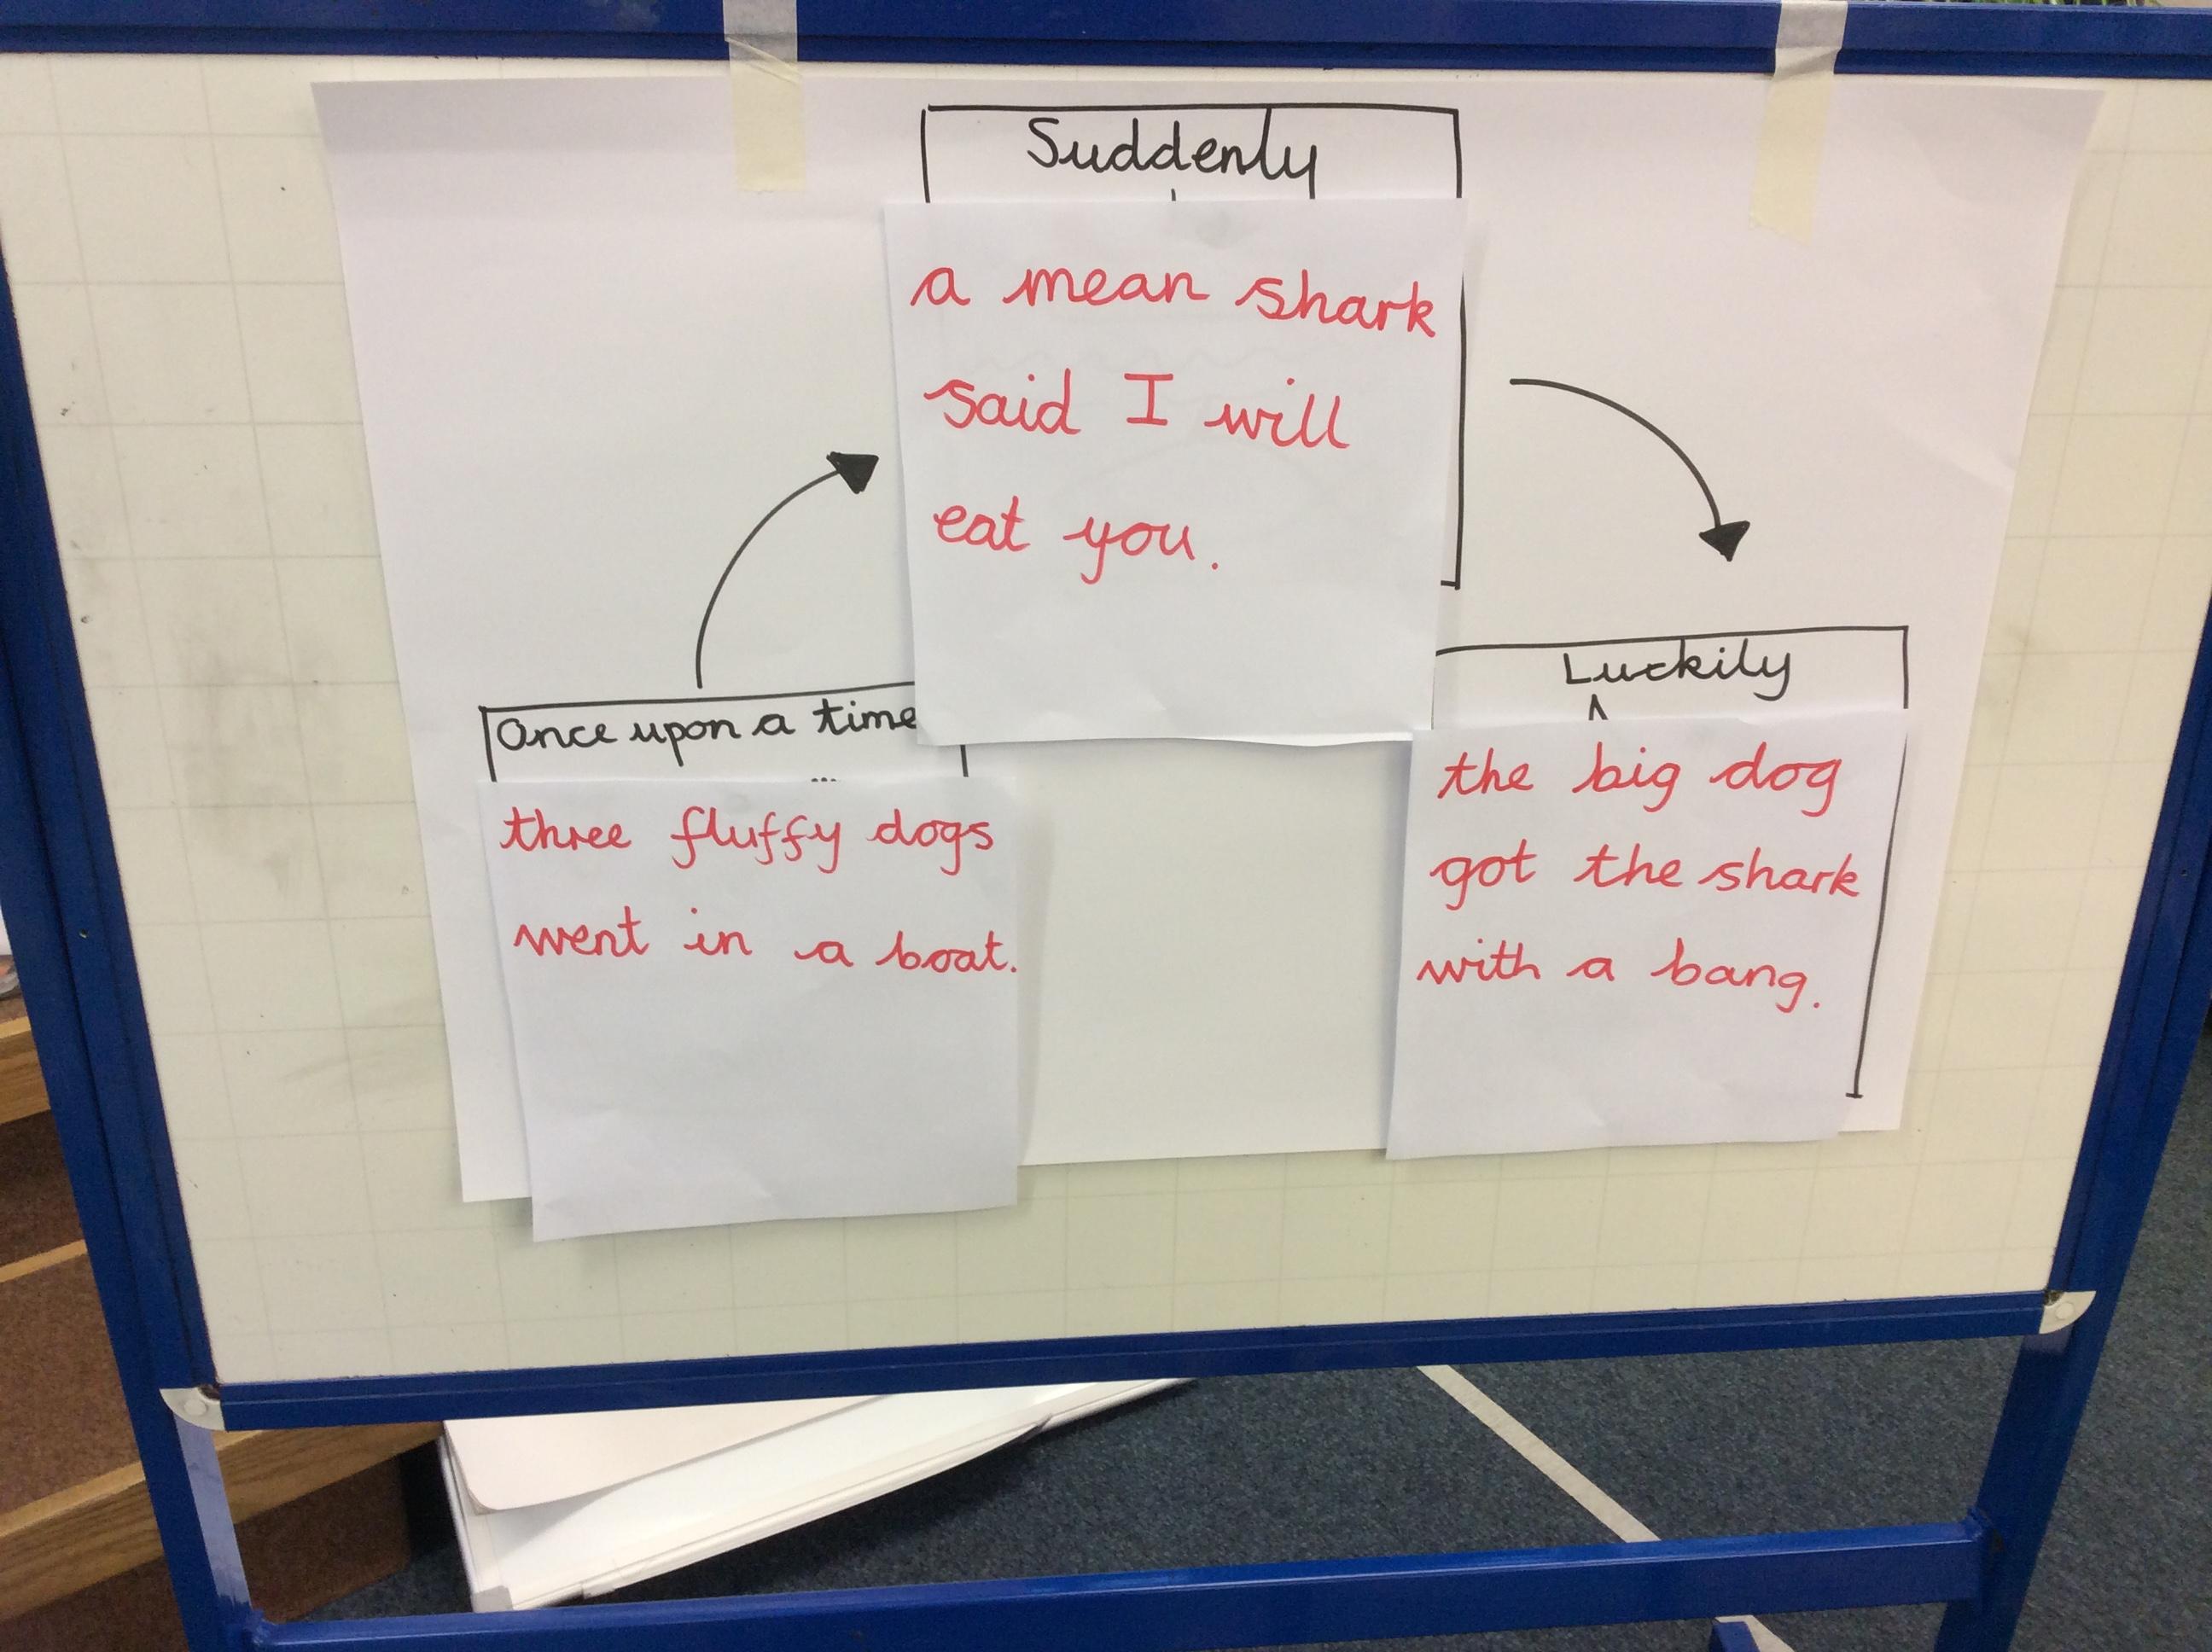 Once upon a time
...
three fluffy dogs
went in a boat.
Suddenly
a mean shark
said I will
eat you.
Luckily
the big dog
got the shark
with a bang.